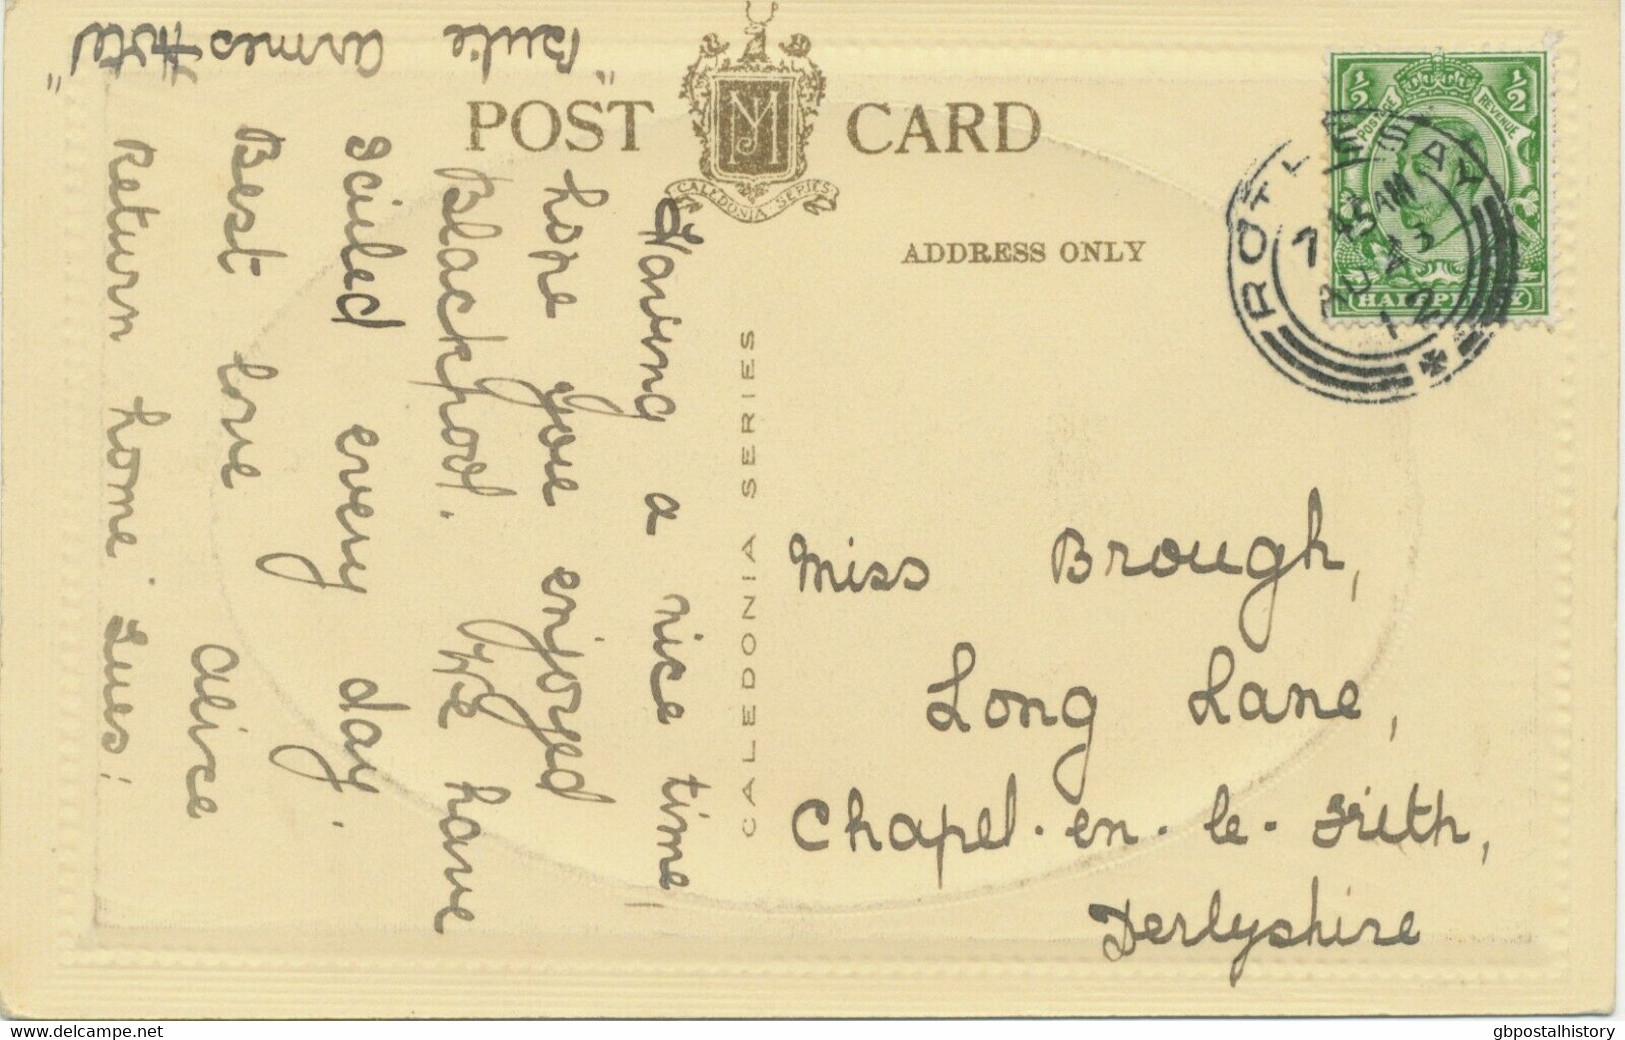 "Bute armes Hotel"
POST CARD
JM
CALEDONIA SERIES
ADDRESS ONLY
CALEDONIA SERIES
½ ½
POSTAGE REVENUE
HALFPENNY
ROTHESAY
7 45 AM
AU 23
12
Having a nice time,
hope you enjoyed
Blackpool. We have
sailed every day.
Best love
Alice
Return home Tues:
Miss Brough,
Long Lane,
Chapel-en-le-Frith,
Derbyshire
https://www.delcampe.net
gbpostalhistory